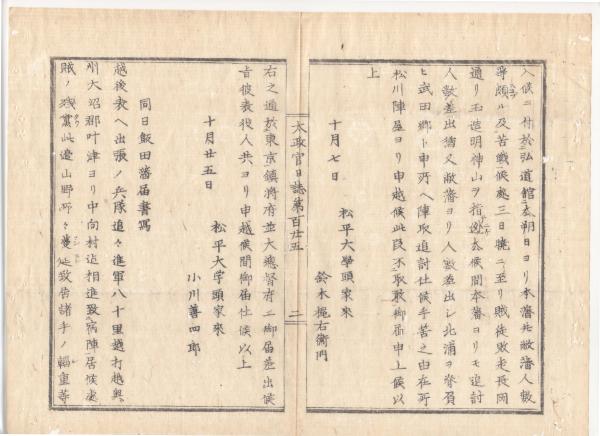 入候ニ付於弘道館去朔日ヨリ本藩共敝藩人数
導頗ル及苦戦候處三日暁ニ至リ賊徒敗走長岡
通リ玉造明神山ヲ指逃去候間本藩ヨリモ追討
人数差出猶又敝藩ヨリ人数差出シ北浦ヲ
ヒ武田郷ト申所ヘ陣取追討仕候手筈之由在所
松川陣屋ヨリ申越候此段不取敢御届申上候以
上
十月七日
松平大學頭家來
鈴木 右衛門
太政官日誌第百廿五
二
右之通於東京鎮將府並大総督府ニ御届差出候
旨彼表役人共ヨリ申越候間御届仕候以上
十月廿五日
松平大学頭家來
小川善四郎
同日飯田藩届書写
越後表ヘ出張ノ兵隊追々進軍八十里越打越奥
州大沼郡叶津ヨリ中向村迠相進致宿陣居候處
賊ノ残黨此邊山野所々蔓延致居諸手ノ輜重等